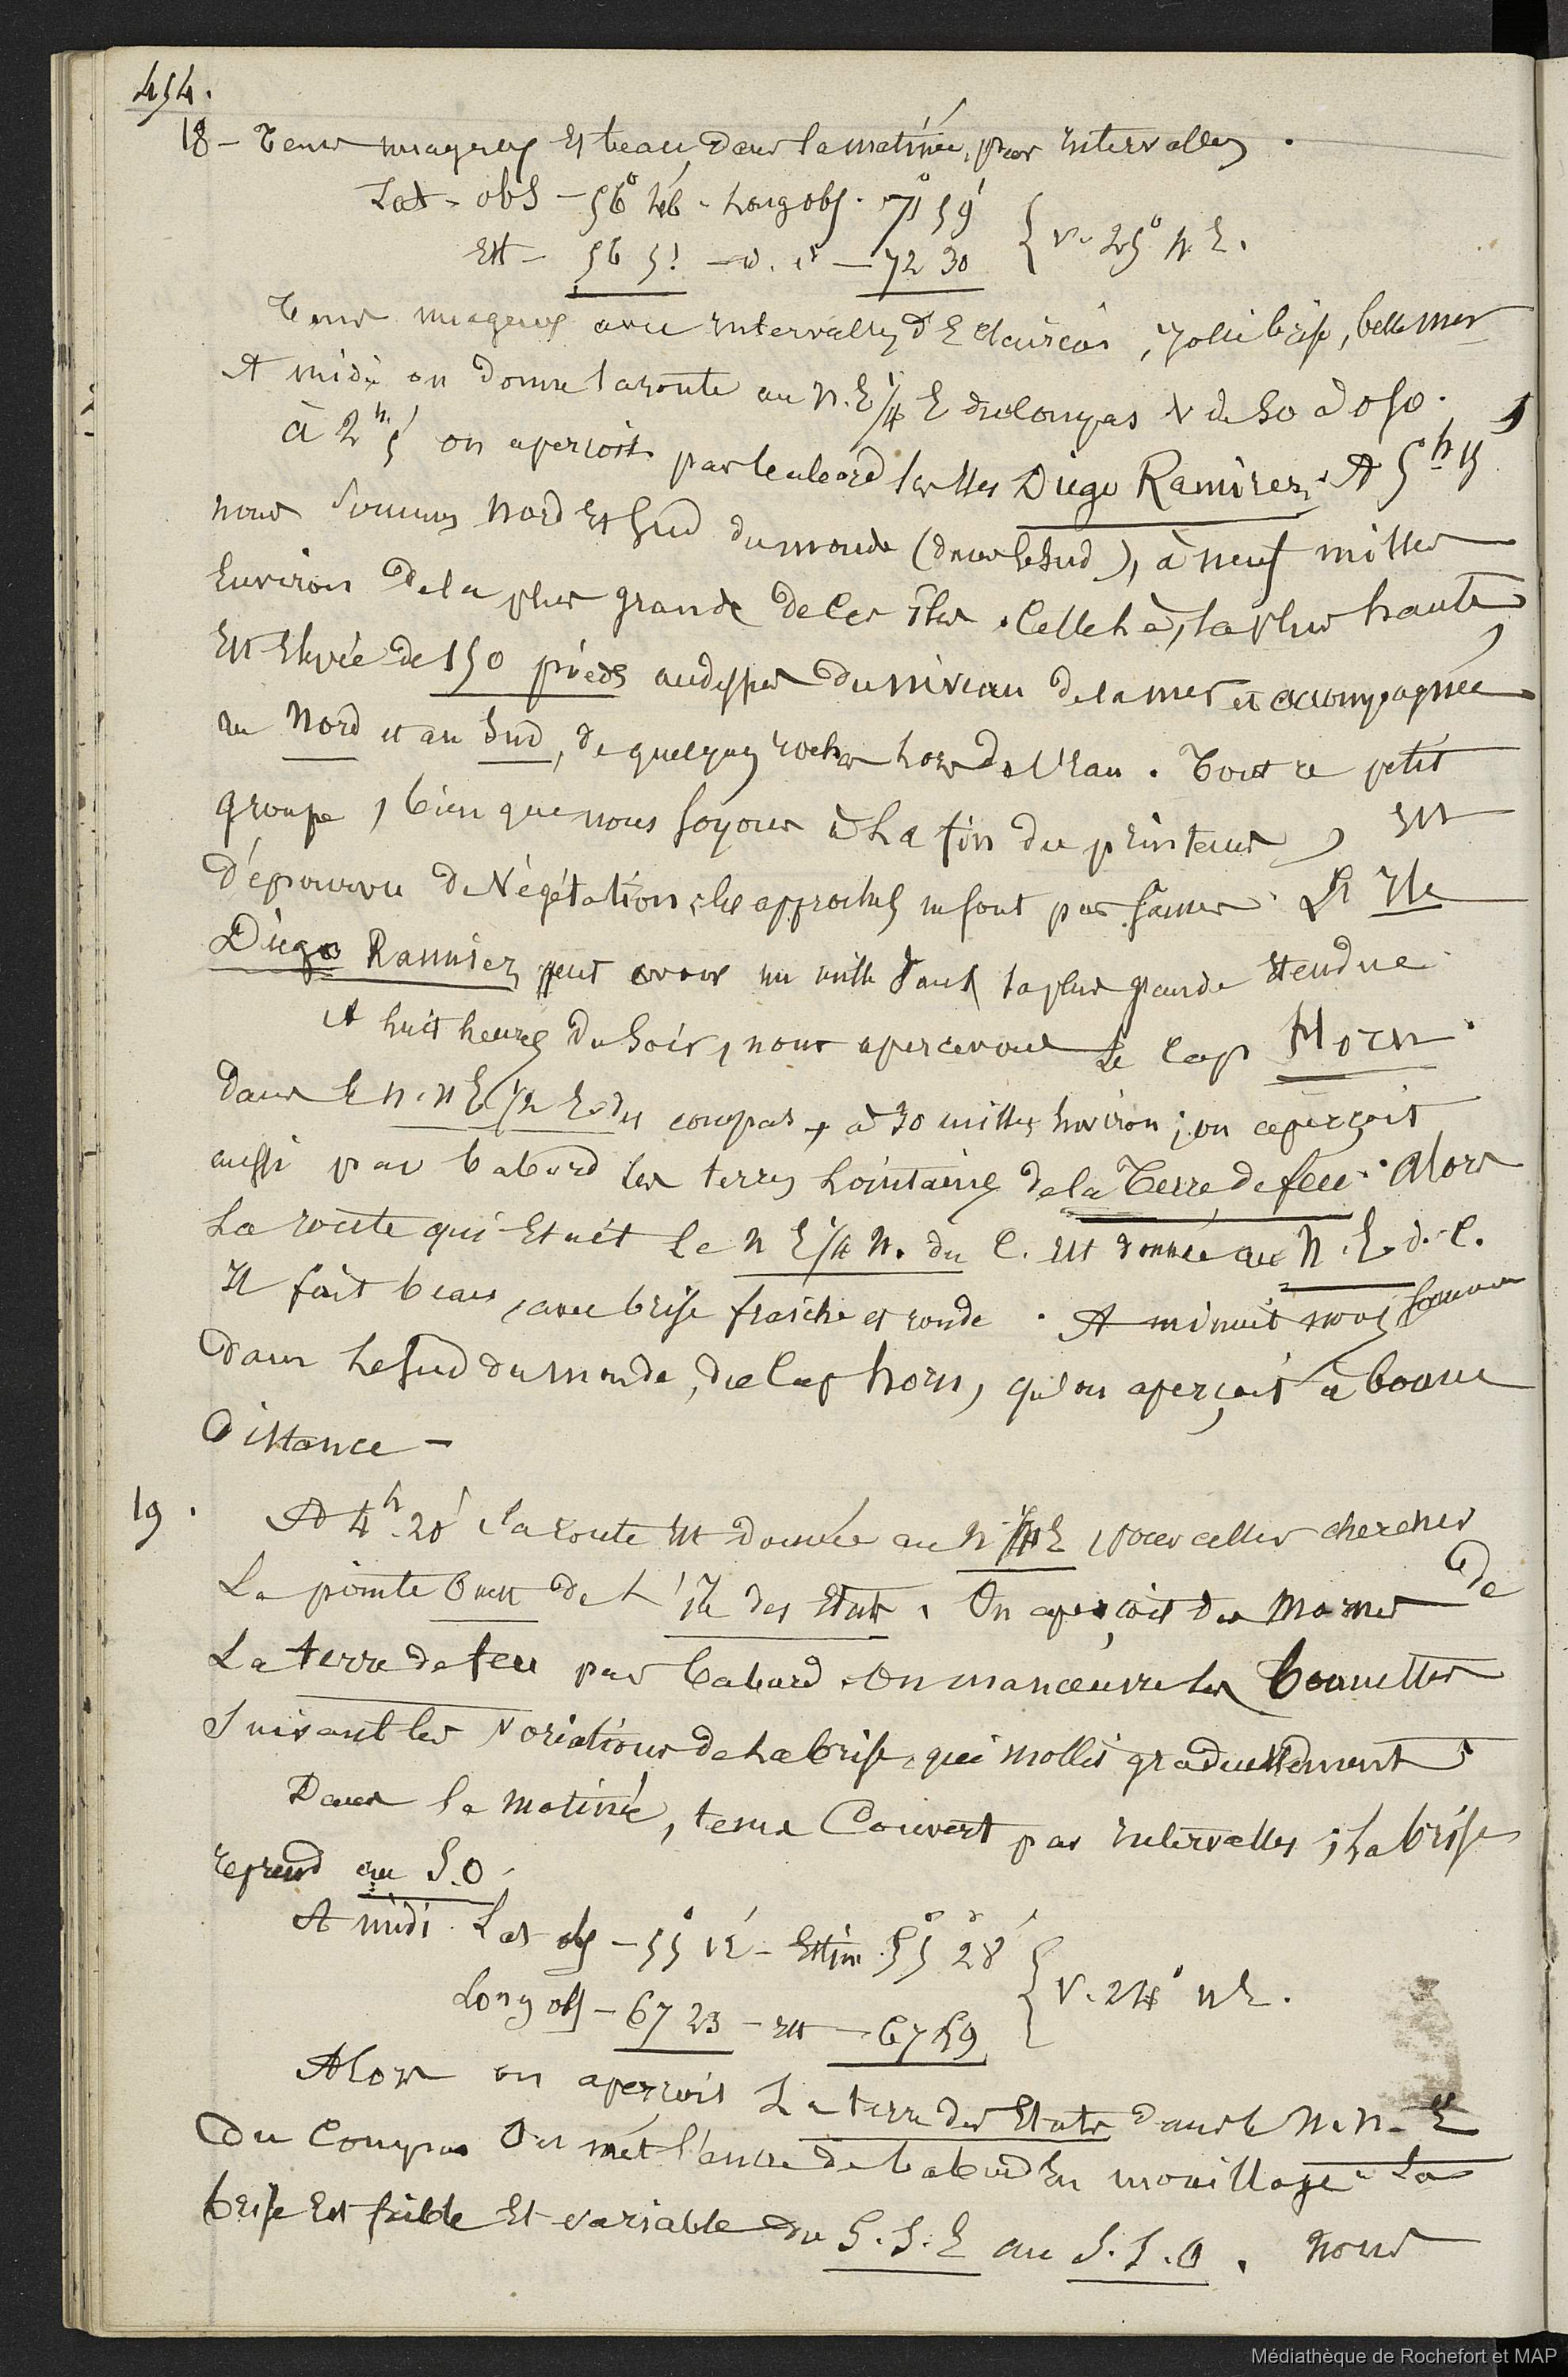 454.
18 - Tems nuageux Et beau dans la matinée, par Intervalles.
Lat - obs - 56° 46' - Long obs. 71° 59'
Est - 56 51 - d. d° - 72 30 { V. 25° N E.
Tems nuageux avec Intervalles d'Eclaircis, jolie brise, belle mer
A midi on donne la route au N. E 1/4 E du compas V du SO à OSO.
à 2h 5' on aperçoit par le babord les Iles Diego Ramirez. A 5h 15'
nous sommes Nord Et Sud du monde (dans le Sud), à neuf milles
Environ de la plus grande de Ces îles. Celle là, la plus haute,
Est Elevée de 150 pieds audessus du niveau de la mer et accompagnée
au Nord et au Sud, de quelques rochers hors de l'Eau. Tout ce petit
groupe, bien que nous soyons à La fin du printems, Est
dépourvu de Végétation, les approches n'en sont pas saines. L'Ile
Diego Ramirez peut avoir un mille dans sa plus grande Etendue.
A huit heures du Soir, nous apercevons Le Cap Horn.
dans le N. N E 1/2 E du compas, à 30 milles Environ; on aperçoit
aussi par babord les terres Lointaines de la Terre de feu. Alors
La route qui Etait Le N E 1/4 N. du C. Est donnée au N. E. d. C.
Il fait beau, avec brise fraiche et ronde. A minuit nous sommes
dans Le Sud du monde, du Cap horn, qu'on aperçoit à bonne
Distance -
19. A 4h 20' la route Est donnée au N E pour aller chercher
La pointe Ouest de L'Ile des Etats. On aperçoit des Mornes de
La terre de feu par babord. On manoeuvre les bonnettes
Suivant les Variations de La brise, qui mollit graduellement
Dans la matinée, tems Couvert par Intervalles; La brise
reprend au S.O.
A midi. Lat obs - 55° 12' - Estim 55° 28'
Long obs - 67 23 - Est - 67 59 { V. 24° N E.
Alors on aperçoit La terre des Etats dans le N. N. E
Du Compas On met l'ancre de babord En mouillage. La
brise Est faible Et variable du S. S. E au S. S. O. Nous
Médiathèque de Rochefort et MAP